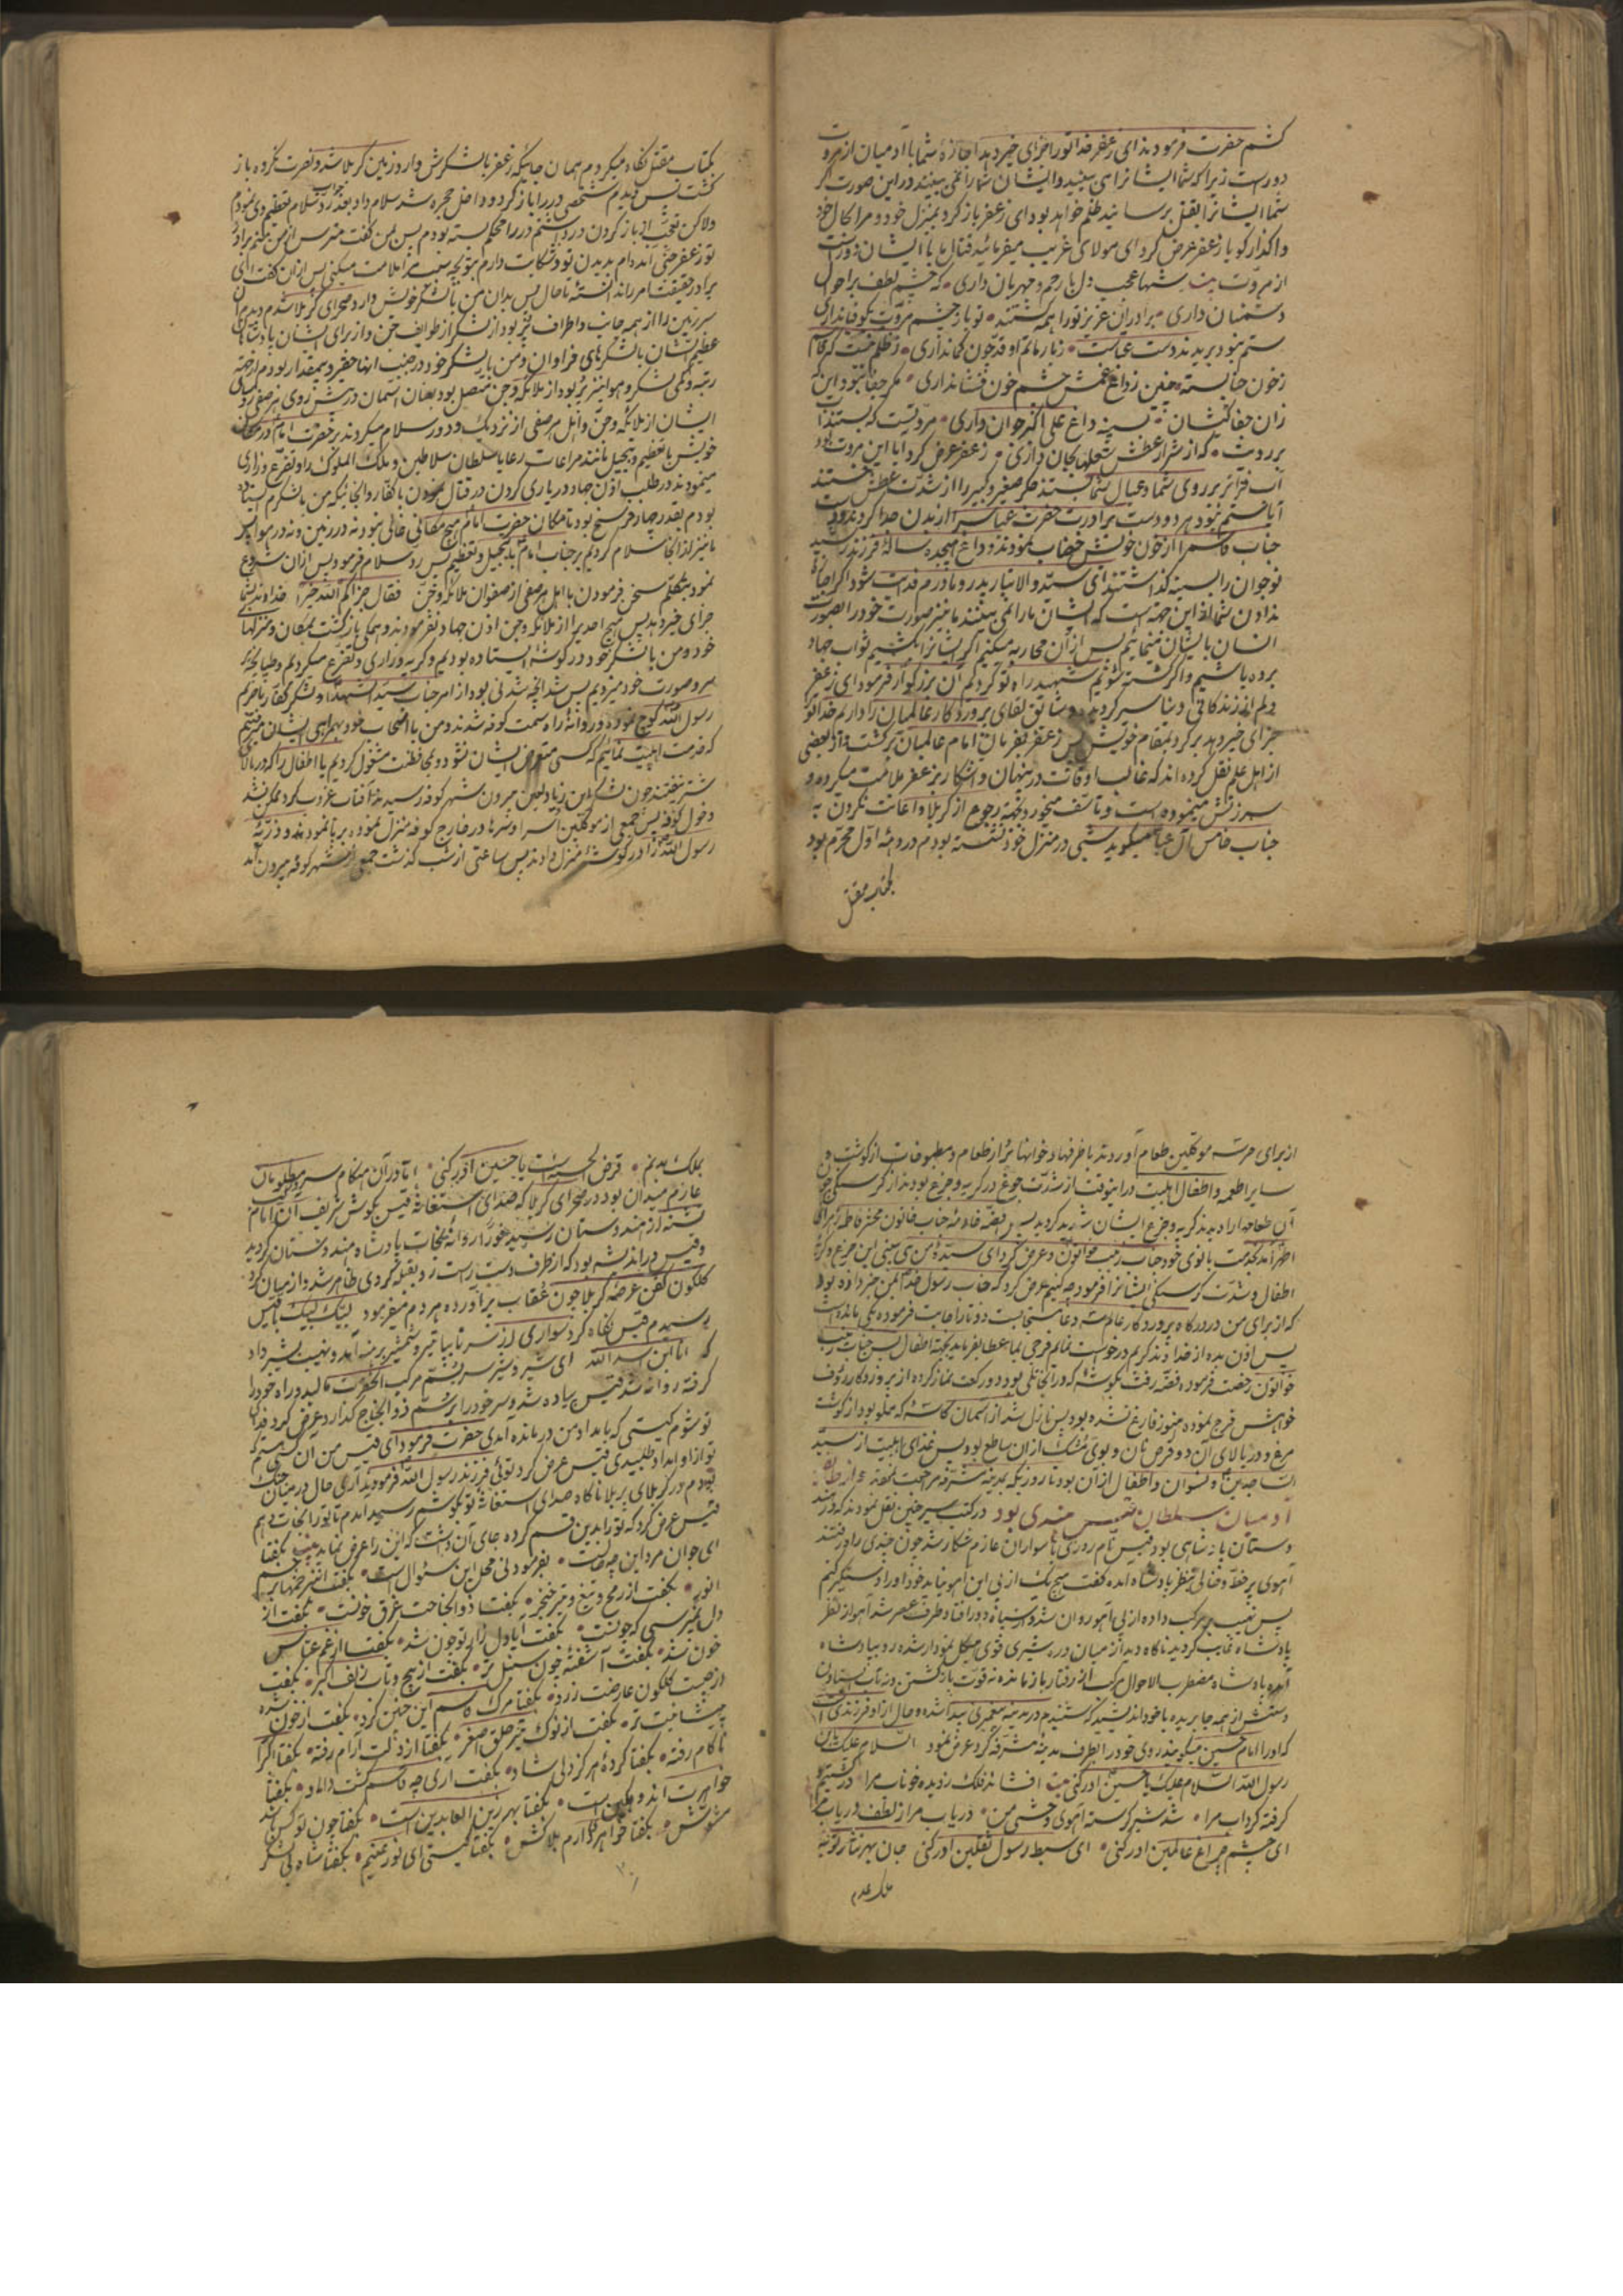 کشم حضرت فرمودند ای زعفر خدا تو را جزای خیر دهد اجازهٔ شما با آدمیان از مروت
دور است زیرا که شما ایشانرا می بینید و ایشان شما را نمی بینند در این صورت اگر
شما ایشانرا بقتل برسانید ظلم خواهد بود ای زعفر باز کرد بمنزل خود و مرا بحال خود
واگذار گویا زعفر عرض کرد ای مولای غریب میفرمائید قتال ما با ایشان دور است
از مروت بیت شها عجب دل با رحم و مهربان داری که چشم لطف بر احوال
دشمنان داری برادران عزیز تو را همه کشتند تو باز چشم مروت بکوفیان داری
ستم نبود بریدند دست عباست
زخون حنا بسته
زان جفا کیشان بسینه داغ علی اکبر جوان داری مروتیست که بستند آب
بر رویت که از شرار عطش شعلها بجان داری زعفر عرض کرد ایا این مروت بود
آب فرات بر روی شما و عیال شما بستند جگر صغیر و کبیر را از شدت عطش خستند
آیا ستم نبود هر دو دست برادرت حضرت عباس را از بدن جدا کردند و
جناب قاسم را از خون خویش خضاب نمودند و داغ هیجده سالهٔ فرزند رشید
نوجوان را بسینه گذاشتند ای سید والاتبار پدر و مادرم فدایت شود اگر اجازه
ندادن شما از این جهة است که ایشان ما را نمی بینند ما نیز صورت خود را بصورت
انسان بایشان مینمائیم پس از آن محاربه میکنیم اگر ایشانرا کشیم ثواب جهاد
برده باشیم و اگر کشته شویم شهید راه تو گردیم آن بزرگوار فرمود ای زعفر
دلم از زندگانی دنیا سیر گردیده و مشتاق لقای پروردگار عالمیان را دارم خدا تو را
جزای خیر دهد برگرد بمقام خویش پس زعفر بفرمان امام عالمیان برگشت و از بعضی
از اهل علم نقل کرده اند که غالب اوقات در پنهان و آشکار بر زعفر ملامت میکرده و
سرزنش مینموده است و تاسف میخورد بجهة رجوع از کربلا و اعانت نکردن به
جناب خامس آل عبا میگوید شبی در منزل خود نشسته بودم در دههٔ اول محرم بود
بکتاب مقتل
بکتاب مقتل نگاه میکردم همان جائیکه زعفر با لشکرش وارد زمین کربلا شد و نصرت نکرده باز
کشت پس دیدم شخصی در را باز کرد و داخل حجره شد سلام داد بعد رد جواب سلام تعظیم وی نمودم
ولاکن تعجب از باز کردن در داشتم در را محکم بسته بودم پس بمن گفت مترس از من منم برادر
تو زعفر جنی آمده ام بدیدن تو و شکایت دارم بتو بچه سبب مرا ملامت میکنی پس از آن گفت ای
برادر حقیقت امر را ندانستهٔ تا حال پس بدان من با لشکر خویش وارد صحرای کربلا شدم و دیدم آن
سرزمین را از همه جانب و اطراف پر بود از لشکر از طوایف جن و از برای ایشان پادشاهان
عظیم الشان با لشکرهای فراوان و من با لشکر خود در جنب آنها حقیر و بیمقدار بودم از جهة
رتبه و کمی لشکر و هوا نیز پر بود از ملائکه و جن متصل بود بعنان آسمان در پیش روی هر صفی
ایشان از ملائکه و جن و اهل هر صفی از نزدیک و دور سلام میکردند بر حضرت امام در مکان
خویش با تعظیم و تبجیل مانند مراعات رعایا سلطان سلاطین و ملک الملوک را و تضرع و زاری
مینمودند در طلب اذن جهاد و یاری کردن در قتال نمودن با کفار و انجائیکه من با لشکرم ایستاده
بودم بقدر چهار فرسخ بود تا مکان حضرت امام هیچ مکانی خالی نبود نه در زمین و نه در هوا پس
ما نیز از آنجا سلام کردیم بر جناب امام با تبجیل و تعظیم پس رد سلام فرمود پس از آن شروع
نمود بتکلم سخن فرمودن با اهل هر صفی از صفوف ملائکه و جن فقال جزاکم الله خیرا خداوند شما
جزای خیر دهد پس هیچ احدیرا از ملائکه و جن اذن جهاد نفرمودند و همگی بازگشت بمکان و منزلهای
خود و من با لشکر خود در گوشهٔ ایستاده بودیم و گریه و زاری و تضرع میکردیم و طپانچه بر
سر و صورت خود میزدیم پس شد آنچه شدنی بود از امر جناب سید الشهداء و لشکر کفار با حرم
رسول الله کوچ نموده و روانهٔ راه سمت کوفه شدند و من با اصحاب خود بهمراهی ایشان رفتیم
که خدمت اهلبیت نمائیم که کسی متعرض ایشان نشود و بمحافظت مشغول گردیم یا اطفال را که از بالای
شتر نیفتند چون لشکر ابن زیاد لعین بیرون شهر کوفه رسیدند آفتاب غروب کرد ممکن نشد
دخول کوفه پس جمعی از موکلین اسرا و سرها در خارج کوفه منزل نموده بر پا نمودند و ذریهٔ
رسول الله را در گوشهٔ منزل دادند پس ساعتی از شب گذشت جمعی از شهر کوفه بیرون آمد
از برای حرسه موکلین طعام آوردند با ظرفها و خوانها پر از طعام و مطبوخات از گوشت و
سایر اطعمه و اطفال اهلبیت در اینوقت از شدت جوع در گریه و جزع بودند از گرسنگی چون
آن طعامها را دیدند گریه و جزع ایشان شدید گردید پس فضه خادمهٔ جناب خاتون محشر فاطمه زهرای
اطهر آمد بخدمت بانوی خود جناب زینب خواتون و عرض کرد ای سیدهٔ من می بینی این جزع و گریه
اطفال و شدت گرسنگی ایشانرا فرمود چه کنیم عرض کرد که جناب رسول خدا بمن خبر داده بود
که از برای من در درگاه پروردگار عالم سه دعا مستجابست دو تا را اجابت فرموده یکی مانده است
پس اذن بده از خداوند کریم درخواست نمایم فرجی بما عطا بفرماید بجهة اطفال پس جناب زینب
خواتون رخصت فرمود فضه رفت بگوشهٔ که در آنجا تلی بود دو رکعت نماز کرده از پروردگار رؤف
خواهش فرج نموده هنوز فارغ نشده بود پس نازل شد از آسمان کاسهٔ که مملو بود از گوشت
مرغ و در بالای آن دو قرص نان و بوی مشک از آن ساطع بود پس غذای اهلبیت از سید
الساجدین و نسوان و اطفال از آن بود تا روزیکه بمدینه مشرفه مراجعت نمودند
در میان سلطان قیس هندی بود در کتب سیر چنین نقل نموده اند که در هند
وستان پادشاهی بود قیس نام روزی با سواران عازم شکار شد چون چندی راه رفتند
آهوی پر خط و خالی بنظر پادشاه آمده گفت هیچ یک از پی این آهو نیاید خود او را دستگیر کنیم
پس نهیب بر مرکب داده از پی آهو روان شد و از سپاه دور افتاد طرف عصر شد آهو از نظر
پادشاه غایب گردید ناگاه دید از میان دره شیری قوی هیکل نمودار شده رو بپادشاه
آمد پادشاه مضطرب الاحوال مرکب از رفتار باز مانده نه قوت بازگشتن و نه تاب ایستادن
دستش از همه جا بریده با خود اندیشید که شنیدم در مدینه پیغمبری پیدا شده و حال از او فرزندی است
که او را امام حسین میگویند روی خود را بطرف مدینهٔ مشرفه کرد عرض نمود السلام علیک یابن
رسول الله السلام علیک یا حسین ادرکنی بیت افشاند فلک ز دیده خوناب مرا در ششم و
گرفته گرداب مرا شد شیر گرسنه آهوی وحشی من دریاب مرا ز لطف دریاب مرا
ای چشم و چراغ عالمین ادرکنی ای سبط رسول ثقلین ادرکنی جان بهر نثار تو به
ملک عدم
بملک بدنم قرض الحسنه است یا حسین ادرکنی اما در آن هنگام سرور مظلومان
عازم میدان بود در صحرای کربلا که صدای استغاثهٔ قیس بگوش شریف آن امام
تشنه از هندوستان رسید فوراً روانهٔ نجات پادشاه هندوستان گردید
وقیس در اندیشه بود که از طرف دست راست رو بقبله گردی ظاهر شد و از میان گرد
گلگون کفن عرصهٔ کربلا چون عقاب برآورده هر دم میفرمود لبیک لبیک یا قیس
پرسیدم قیس نگاه کرد سواری از سر تا پا تیر و شمشیر برهنه آمد و نهیب بشیر داد
که انا ابن اسد الله ای شیر
گرفته روانه شد قیس پیاده شد و سر خود را بر سم ذوالجناح گذارد عرض کرد فدای
تو شوم کیستی که بامداد من درمانده آمدی حضرت فرمود ای قیس من آن کسی هستم که
تو از او امداد طلبیدی قیس عرض کرد توئی فرزند رسول الله فرمود بلی آری حال در میان جنگ
بودم در کربلای پر بلا ناگاه صدای استغاثهٔ تو بگوشم رسید آمدم تا تو را نجات دهم
قیس عرض کرد که تو را بدین قسم کرده جای آن داشت که این را عرض نماید بیت بگفتا
ای جوان مرد این چه حالست بفرمود نی محل این سئوال است بگفت این زخمها بر جسم
انور بگفت از رمح و تیغ و تیر و خنجر بگفتا ذوالجناحت غرق خونست بگفت از
دل نپرسی که چونست بگفت آیا دل زار تو چون شد بگفتا از غم عباس
خون شد بگفت آشفتهٔ چون سنبل تر بگفت از پیچ و تاب زلف اکبر بگفت
از چیست گلگون عارضت زرد بگفتا مرگ قاسم این چنین کرد بگفت از خون
پیشانیت تر بگفت از نوک تیر حلق اصغر بگفتا از دلت آرام رفته بگفتا اکبر
ناکام رفته بگفتا کردهٔ هرگز دلی شاد بگفت اری چه قاسم گشت داماد بگفتا
خواهرت اندوهگین است بگفتا بهر زین العابدین است بگفتا چون تو کس
بگفتا خواهر دارم بلاکش بگفتا کیستی ای نور عینم بگفتا شاه بی لشکر